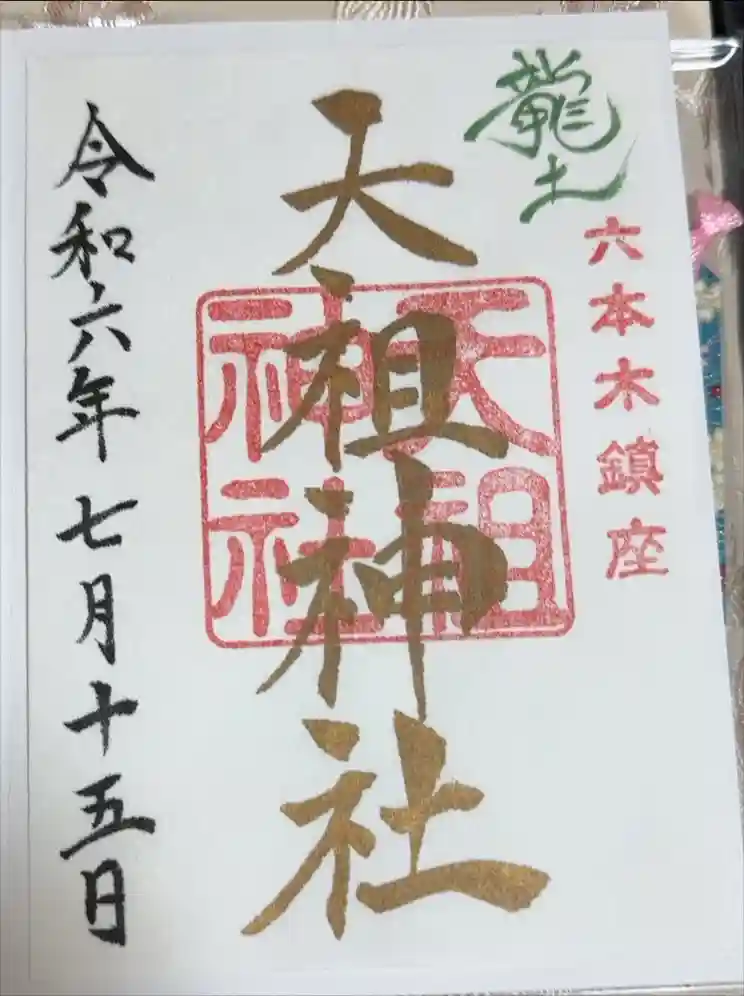 龍土
六本木鎮座
天祖神社
天祖
神社
令和六年七月十五日